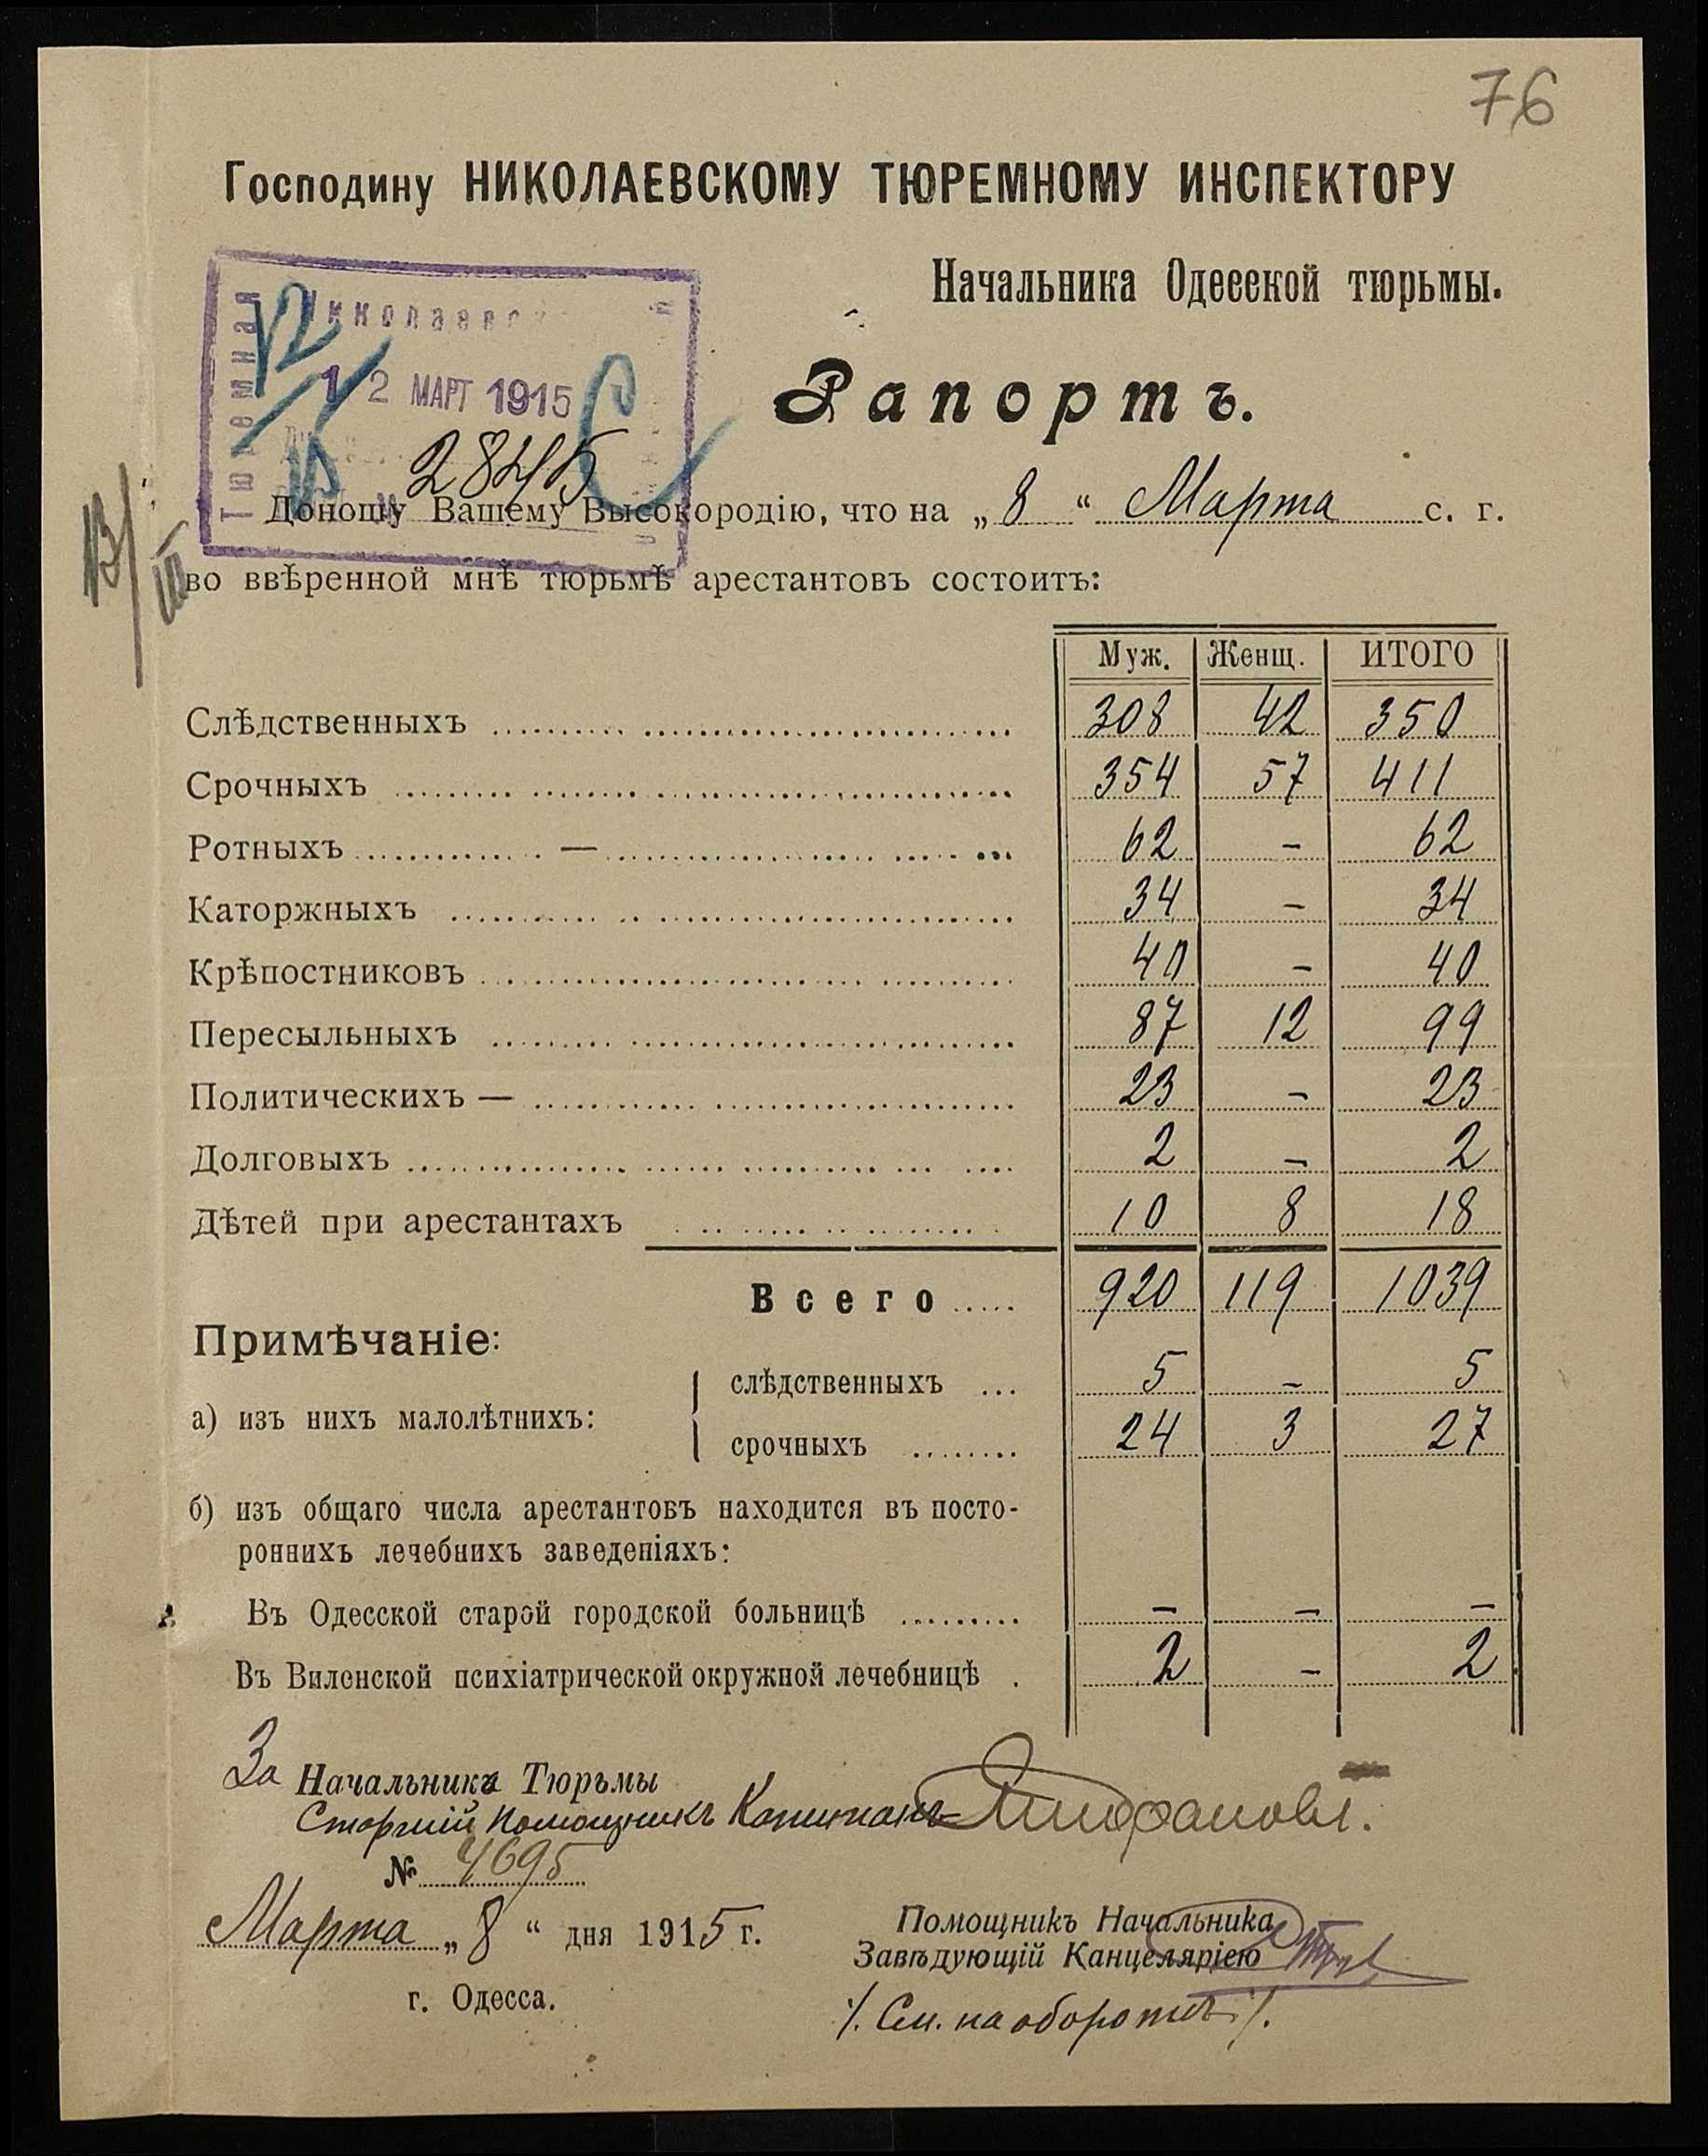 76
Господину НИКОЛАЕВСКОМУ ТЮРЕМНОМУ ИНСПЕКТОРУ
Начальника Одесской тюрьмы.
Николаевск
Тюремная
12 МАРТ 1915
2845
Рапортъ.
Доношу Вашему Высокородію, что на „8“ Марта с. г.
13/III
во ввѣренной мнѣ тюрьмѣ арестантовъ состоитъ:
Муж. Женщ. ИТОГО
Слѣдственныхъ 308 42 350
Срочныхъ 354 57 411
Ротныхъ — 62 - 62
Каторжныхъ 34 - 34
Крѣпостниковъ 40 - 40
Пересыльныхъ 87 12 99
Политическихъ — 23 - 23
Долговыхъ 2 - 2
Дѣтей при арестантахъ 10 8 18
Всего 920 119 1039
Примѣчаніе:
слѣдственныхъ 5 - 5
а) изъ нихъ малолѣтнихъ:
срочныхъ 24 3 27
б) изъ общаго числа арестантовъ находится въ посто-
роннихъ лечебнихъ заведеніяхъ:
Въ Одесской старой городской больницѣ - - -
Въ Виленской психіатрической окружной лечебницѣ 2 - 2
За Начальника Тюрьмы
Старшій Помощникъ Капитанъ
№ 4695
Марта „8“ дня 1915 г.
Помощникъ Начальника
Завѣдующій Канцеляріею
г. Одесса.
./. См. на оборотѣ ./.